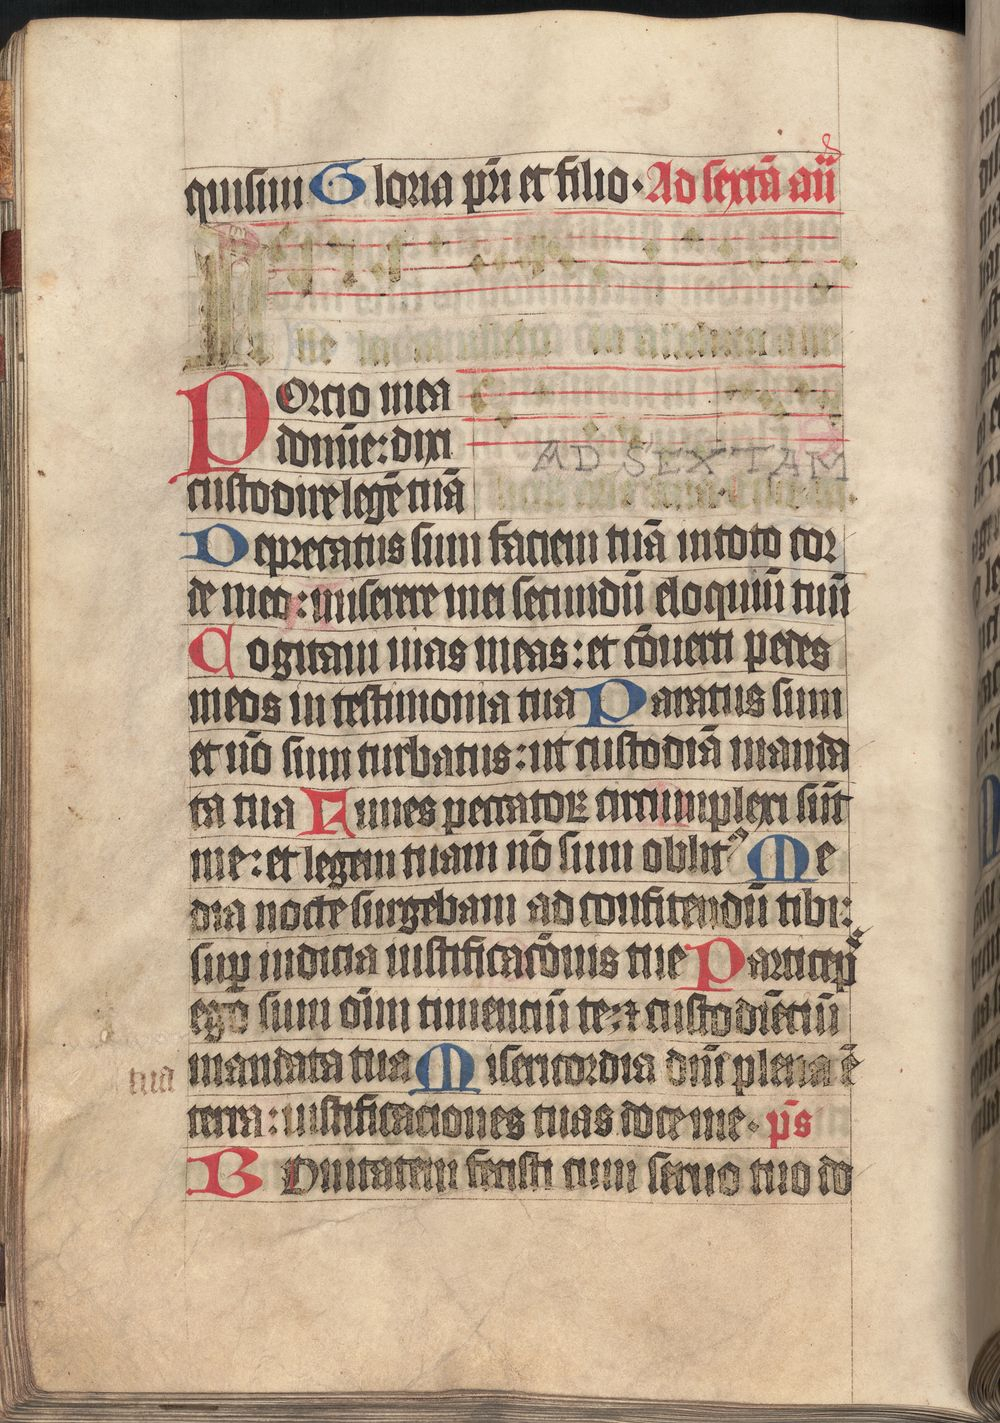 quisiui Gloria pri et filio · Ad sextā añ
POrcio mea
domine: dixi
AD SEXTAM
custodire legē tuā
Deprecatus sum faciem tuā in toto cor
de meo: miserere mei secundū eloquiū tuū
Cogitaui uias meas: et cōuerti pedes
meos in testimonia tua Paratus sum
et nō sum turbatus: ut custodiā manda
ta tua Funes peccator circumplexi sūt
me: et legem tuam nō sum oblitꝰ Me
dia nocte surgebam ad confitendū tibi:
suꝑ iudicia iustificacōnis tue Particeps
ego sum oīm timenciū te: ⁊ custodiēciū
mandata tua Misericordia dn̄e plena ē
tua
terra: iustificaciones tuas doce me · ps̄
BOnitatem fecisti cum seruo tuo do